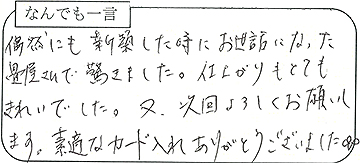 なんでも一言
偶然にも新築した時にお世話になった
畳屋さんで驚きました。仕上がりもとても
きれいでした。又、次回よろしくお願いし
ます。素適なカード入れありがとうございました